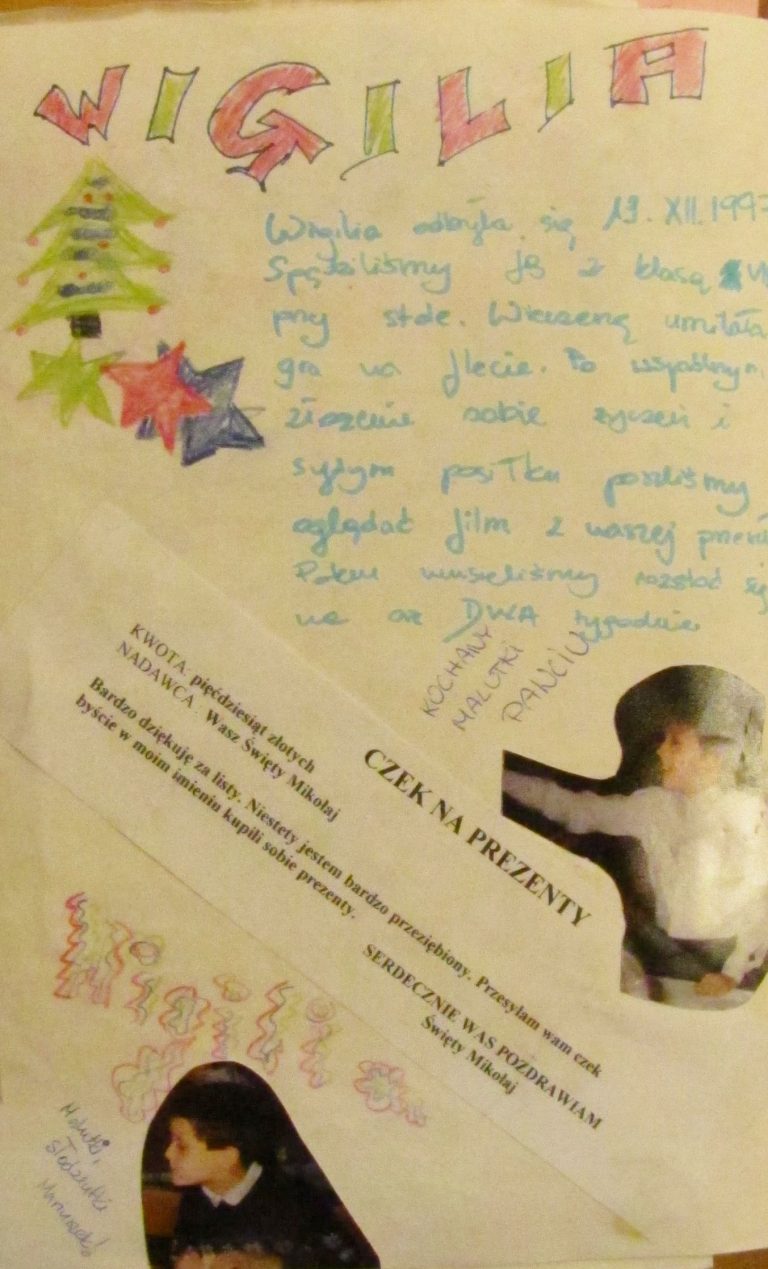 WIGILIA
Wigilia odbyła się 19. XII. 1997
Spędziliśmy ją z klasą
przy stole. Wieczerzę umilała
gra na flecie. Po wspólnym
złożeniu sobie życzeń i
sytym posiłku poszliśmy
oglądać film z naszej
Potem musieliśmy rozstać się
na aż DWA tygodnie
KOCHANY
MALUTKI
PANCIU
KWOTA: pięćdziesiąt złotych
NADAWCA: Wasz Święty Mikołaj
CZEK NA PREZENTY
Bardzo dziękuję za listy. Niestety jestem bardzo przeziębiony. Przesyłam wam czek
byście w moim imieniu kupili sobie prezenty.
SERDECZNIE WAS POZDRAWIAM
Święty Mikołaj
Malutki,
słodziutki